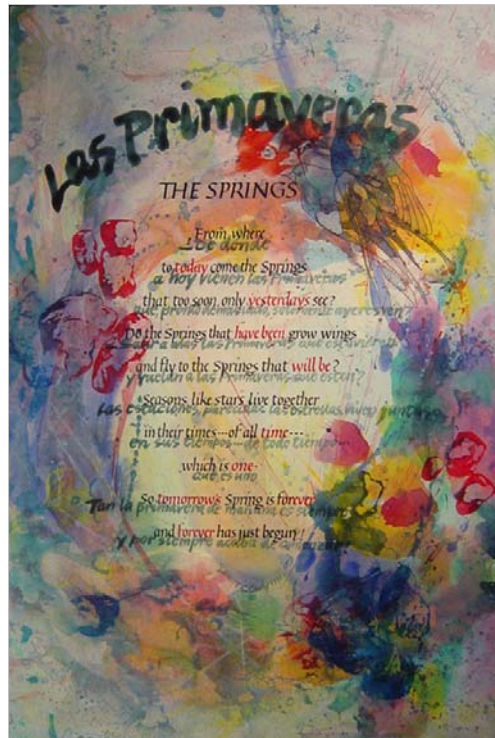 Las Primaveras
THE SPRINGS
From where
De donde
to today come the Springs
a hoy vienen las Primaveras
that too soon only yesterdays see?
que pronto demasiado, solamente ayeres ven?
Do the Springs that have been grow wings
a alas las Primaveras que
and fly to the Springs that will be?
y vuelan a las Primaveras que estén?
Seasons like stars live together
Las estaciones, parecidas las estrellas, viven juntas
in their times---of all time---
en sus tiempos---de todo tiempo---
which is one-
que es uno
So tomorrow's Spring is forever
Tan la primavera de mañana es siempre
and forever has just begun!
y por siempre acaba de comenzar!